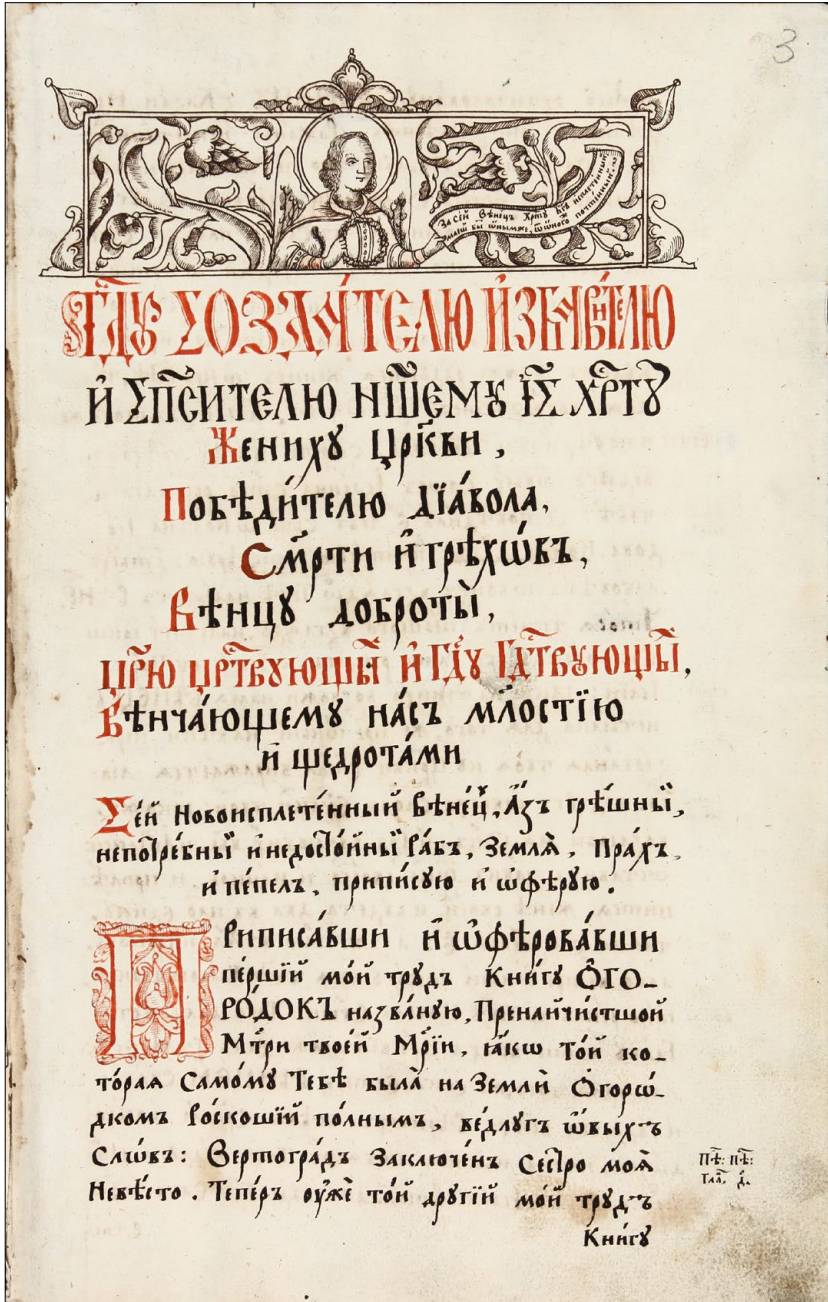 3
За сей Вѣнецъ Хрⷭ҇ту
ГДⷭ҇Ꙋ СОЗДА́ТЕЛЮ И҆ЗБАВИ́ТЕЛЮ
И҆ СПⷭ҇СИТЕЛЮ НШ҃ЕМꙋ І҆С ХРⷭ҇ТꙊ
Женихꙋ Црⷦ҇ви,
Побѣди́телю дїа́вола,
См҃рти и҆ грѣхѡ́въ,
Вѣнцꙋ доброты̀,
ЦРⷭ҇Ю ЦРⷭ҇ТВꙊЮЩИⷯ И҆ ГДⷭ҇Ꙋ ГДⷭ҇ТВꙊЮЩИⷯ,
Вѣнча́ющемꙋ на́съ млⷭ҇остїю
и҆ щедрота́ми
Се́й новоисплете́нный вѣне́ц, а҆́зъ грѣ́шны,
непотре́бны и҆ недосто́йны ра́бъ, землѧ̀, пра́хъ,
и҆ пе́пелъ, припи́сꙋю и҆ ѡ҆фѣ́рꙋю.
Приписа́вши и҆ ѡ҆фѣрова́вши
пе́ршїй мо́й трꙋдъ Кни́гꙋ ОГО-
РО́ДОКЪ назва́нꙋю, Пренайчи́стшой
Мт҃ри твое́й Мр҃їи, ꙗ҆́кѡ то́й ко-
то́раѧ Само́мꙋ Тебѣ̀ была̀ на Землѝ Огорѡ́-
дкомъ Ро́скошїй по́лнымъ, ве́длꙋгъ ѡ҆́выхъ
Слѡ́въ: Вертогра́дъ Заключе́нъ Се́стро моѧ̀
Невѣ́сто. Тепе́ръ оу҆же́ то́й дрꙋгі́й мо́й трꙋдъ
Пѣ: Пѣ:
Гла: д҃.
Кни́гꙋ